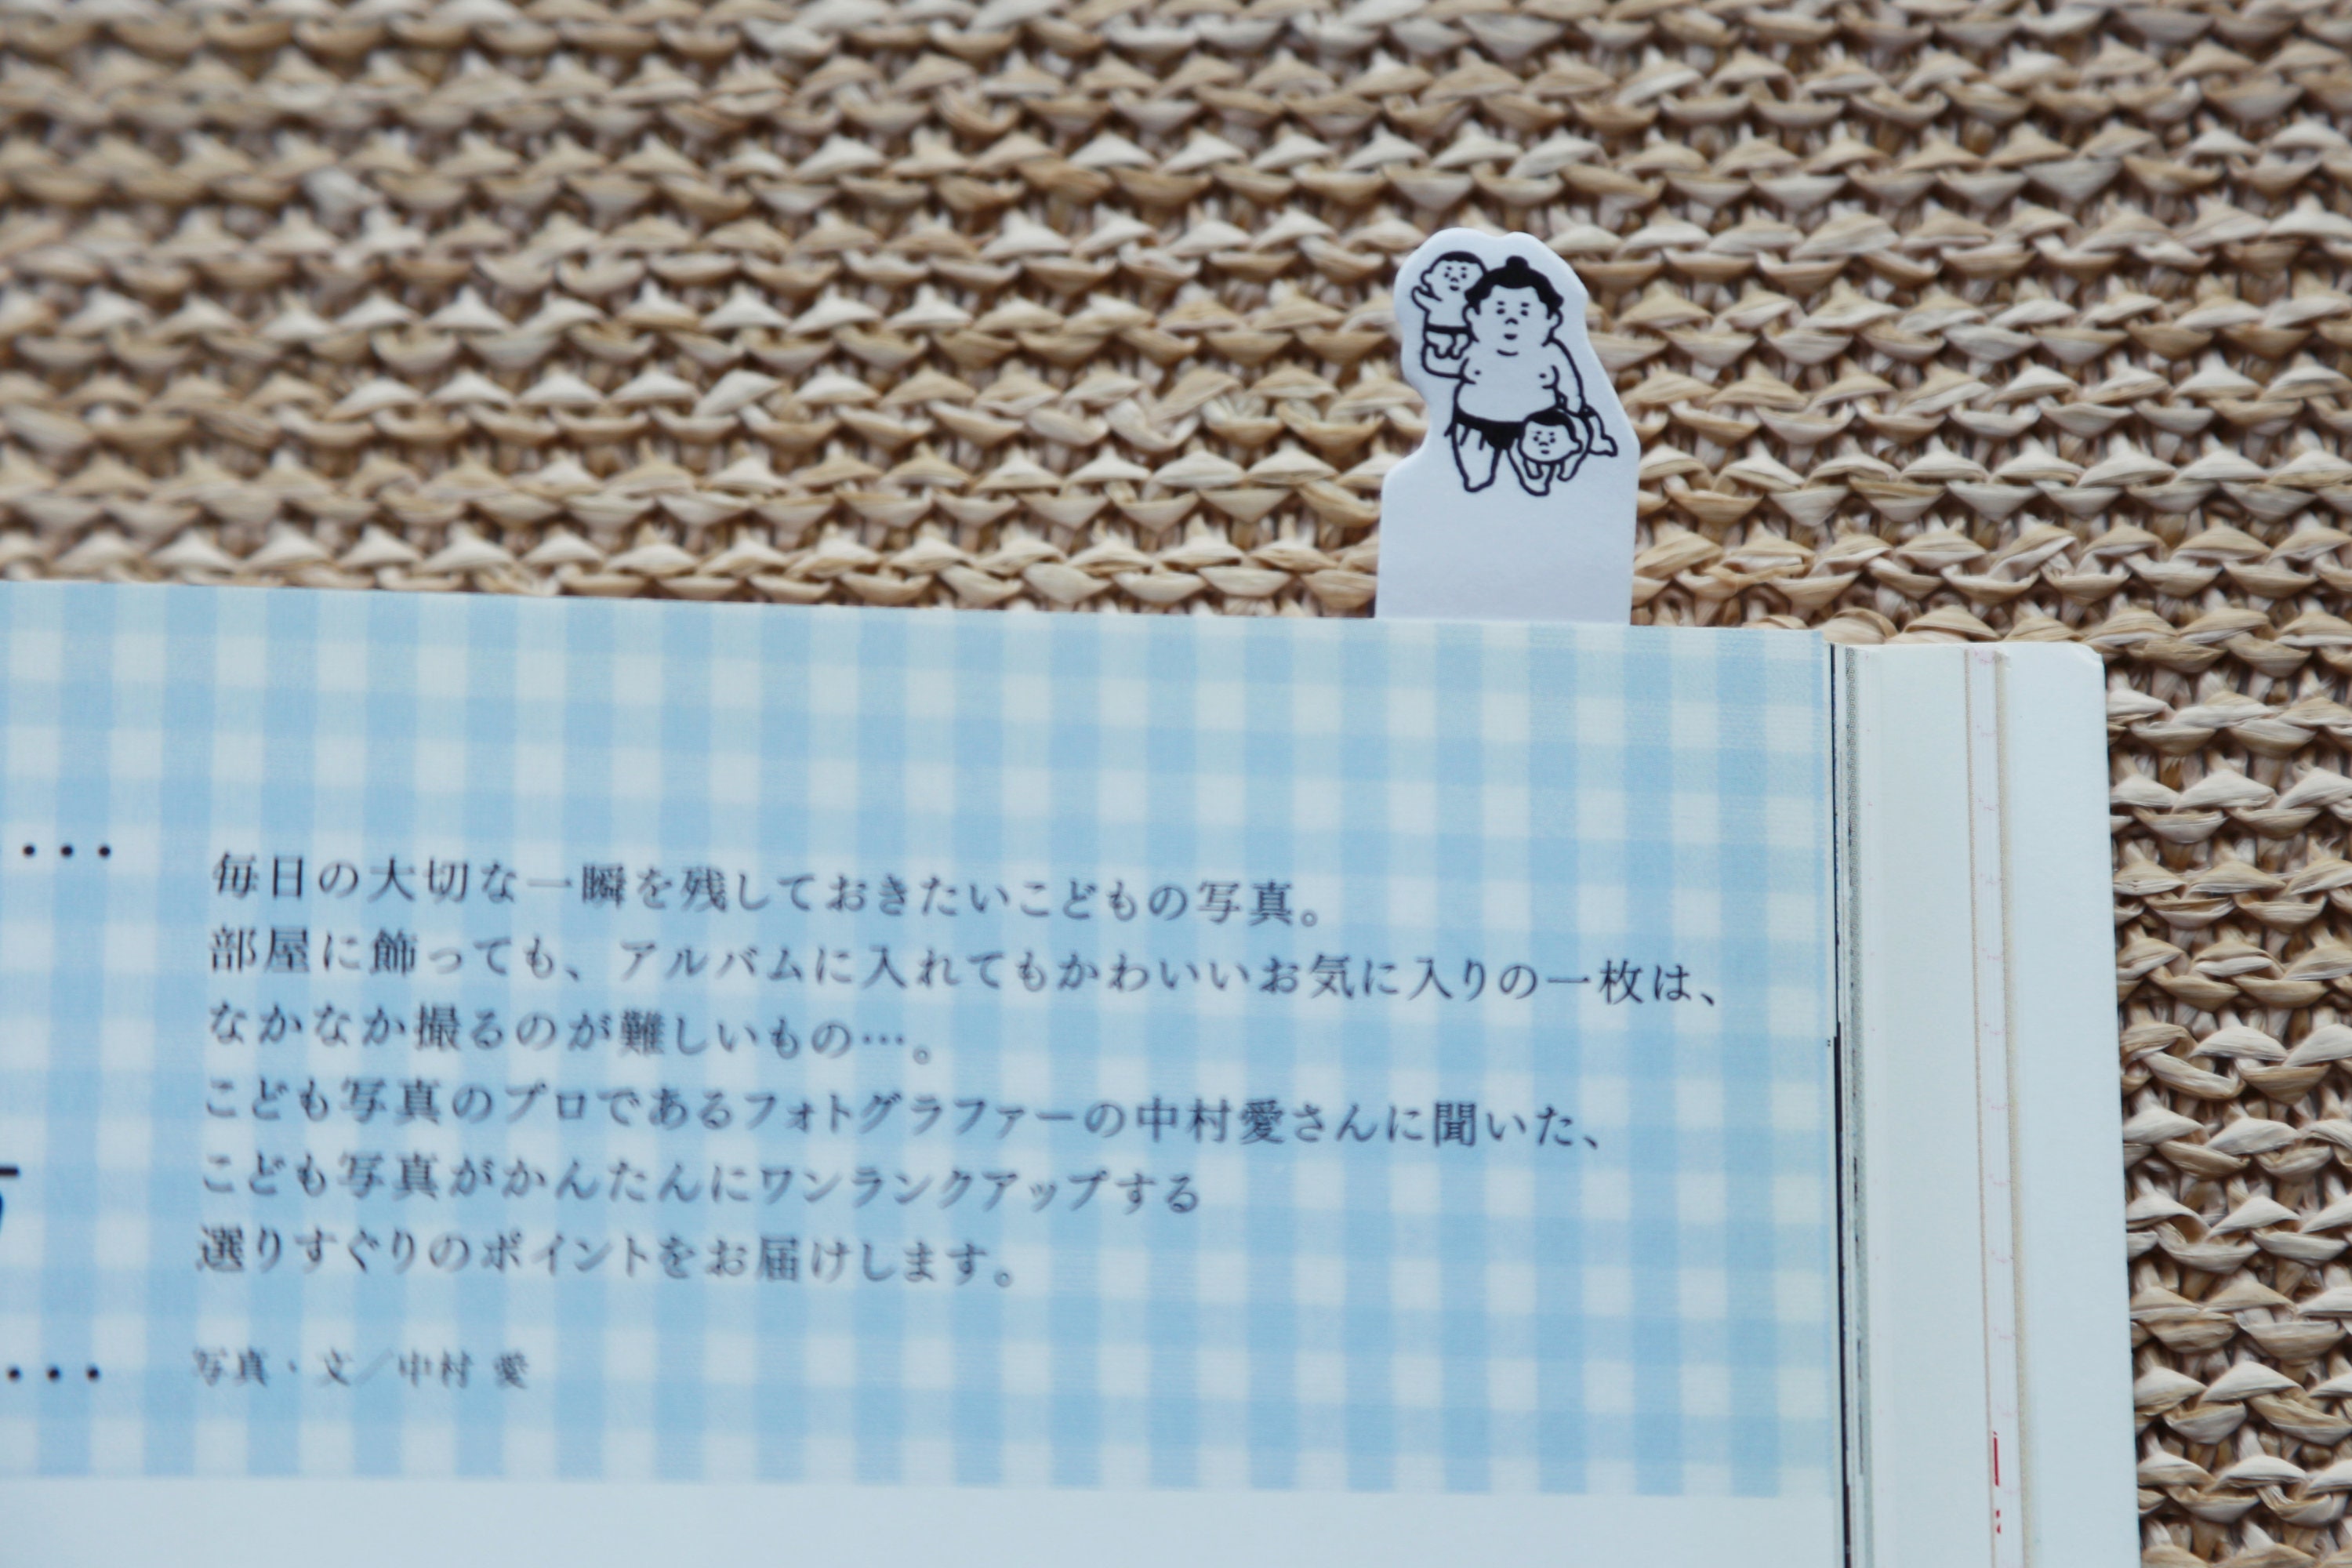 毎日の大切な一瞬を残しておきたいこどもの写真。
部屋に飾っても、アルバムに入れてもかわいいお気に入りの一枚は、
なかなか撮るのが難しいもの…。
こども写真のプロであるフォトグラファーの中村愛さんに聞いた、
こども写真がかんたんにワンランクアップする
選りすぐりのポイントをお届けします。
写真・文／中村 愛